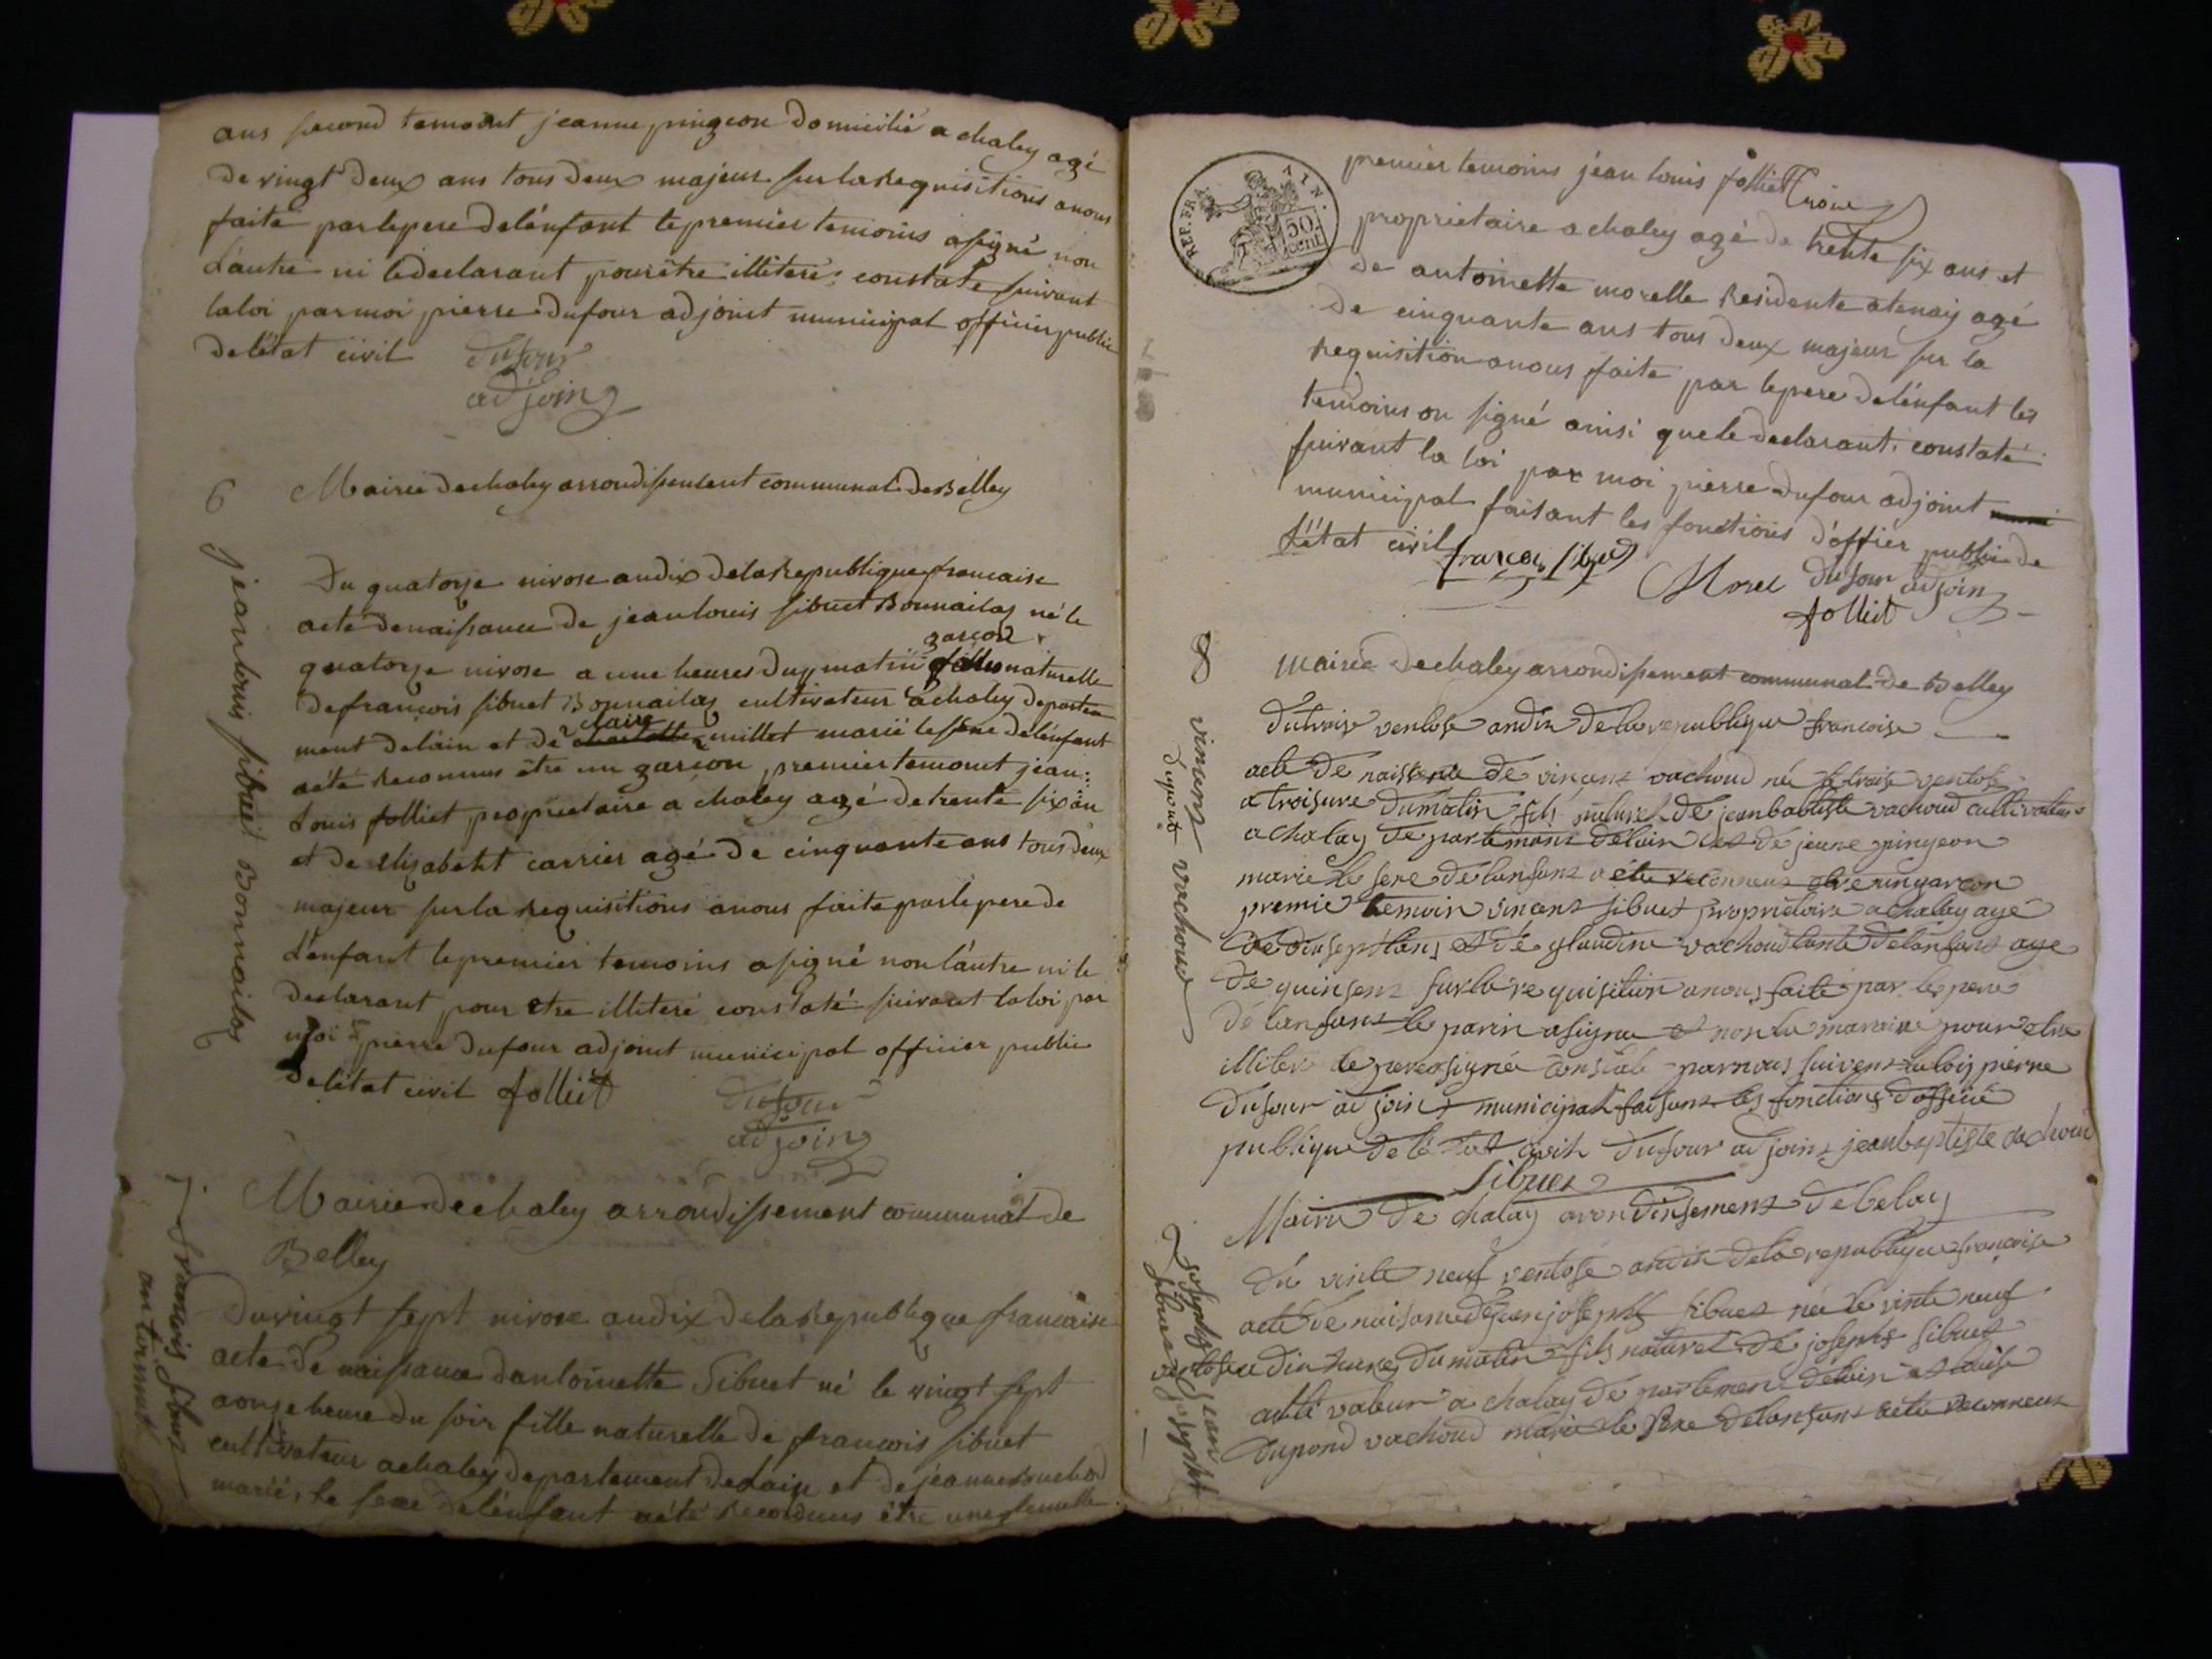 ans second temoint jeanne pingeon domicilié a chaley agé
de vingt deux ans tous deux majeur sur la Requisitions anous
faite par le pere delénfant le premier temoins asigné non
L'autre ni le declarant pour être illiteré. constaté suivant
la loi par moi pierre dufour adjoint municipal officier public
de létat civil dufour
adjoing
6 Mairie de chaley arrondissement communal de Belley
jean louis sibuet Bonnailas
Du quatorze nivose an dix de la Republique francaise
acte denaissance de jean louis sibuet Bonnailas né le
garcon
quatorze nivose a une heures du matin naturelle
de francois sibuet Bonnailas cultivateur à chaley departe
claire
ment delain et de charlotte millet marié le sexe delénfant
aété Reconnus être un garcon premier temoint jean:
Louis folliet propriétaire a chaley agé de trente six an
et de elizabeht carrier agé de cinquante ans tous deux
majeur sur la Requisitions anous faite par le pere de
L'enfant le premier temoins asigné non lautre ni le
declarant pour etre illiteré constaté suivant la loi par
moi pierre dufour adjoint municipal officier public
de létat civil folliet
dufour
adjoing
7. Mairie de chaley arrondissement communal de
Belley
francois sibuet
antoinnet
du vingt sept nivose an dix de la Republique francaise
acte de naissance dantoinette Sibuet né le vingt sept
aonze heure du soir fille naturelle de francois sibuet
cultivateur achaley departement de Lain et de jeanne
marié, le sexe delénfant aété Reconnus être une femelle
REP. FRA. 50 cent AIN.
premier temoins jéan louis folliet
propriétaire a chaley agé de trente six ans et
de antoinette morelle Residente atenay agé
de cinquante ans tous deux majeur sur la
Requisition anous faite par le pere delénfant les
temoins on signé ainsi que le declarant. constaté
suivant la loi par moi pierre dufour adjoint
municipal faisant les fonctions d'offier public de
L'état civil francois sibuet
Morel dufour adjoin
folliet
8 mairie de chaley arrondissement communal de Belley
vincent vachoud
dupont
du trois ventose an dix de la republique francoise
acte de naissence de vincent vachoud né le trois ventose
a troisure du matin fils naturel de jean batiste vachoud cultivateur
a chalay departement delain et de jeane pingeon
marie le sexe de lanfant a été reconneux etre un garcon
premie temoin vincent sibuet proprietaire a chalay agé
de dix sept ans et de glaudine vachoud tante de lanfant age
de quinsent sur la requisition a nous faite par le pere
de lanfant le parin a signe et non la maraine pour etre
illiteré le pere a signé constaté par nous suivent la loi pierre
dufour adjoint municipal faisant les fonctions d'officié
publique de l'état civil dufour adjoint jean baptiste vachoud
sibuet
Mairie de chalay arondissement de belay
jean joseph
sibuet
du vinte neuf ventose an dix de la republique francoise
acte de naisance de jean joseph sibuet né le vinte neuf
ventose a dix hures du matin fils naturel de joseph sibuet
culti vateur a chalay departement delain et de
dupond vachoud marié le sexe de lanfant a été reconneux